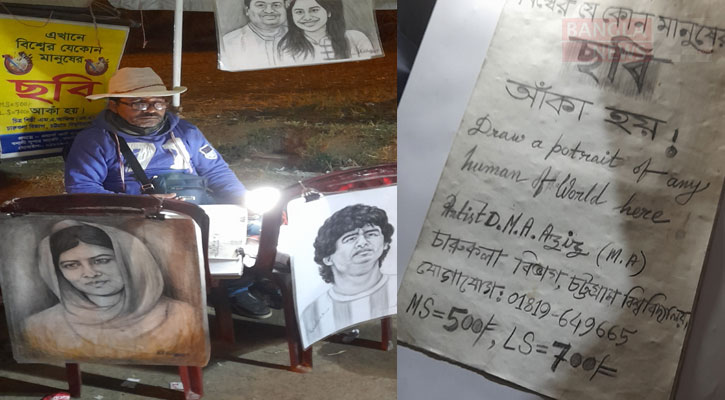 এখানে
বিশ্বের যেকোন
মানুষের
ছবি
MS=500/-
LS=700/-
আঁকা হয়।
যে কোন মানুষের
BANGLA
ছবি
আঁকা হয়!
Draw a potrait of any
human of World here!
Artist D.M.A. Aziz (M.A)
চারুকলা বিভাগ, চট্টগ্রাম বিশ্ববিদ্যালয়,
যোগাযোগ: 01819-649665
MS=500/-, LS=700/-